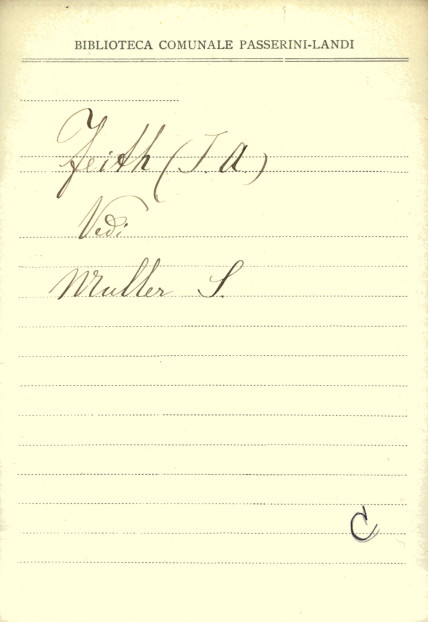 BIBLIOTECA COMUNALE PASSERINI-LANDI
Feith (J. A.)
Vedi
Muller S.
C